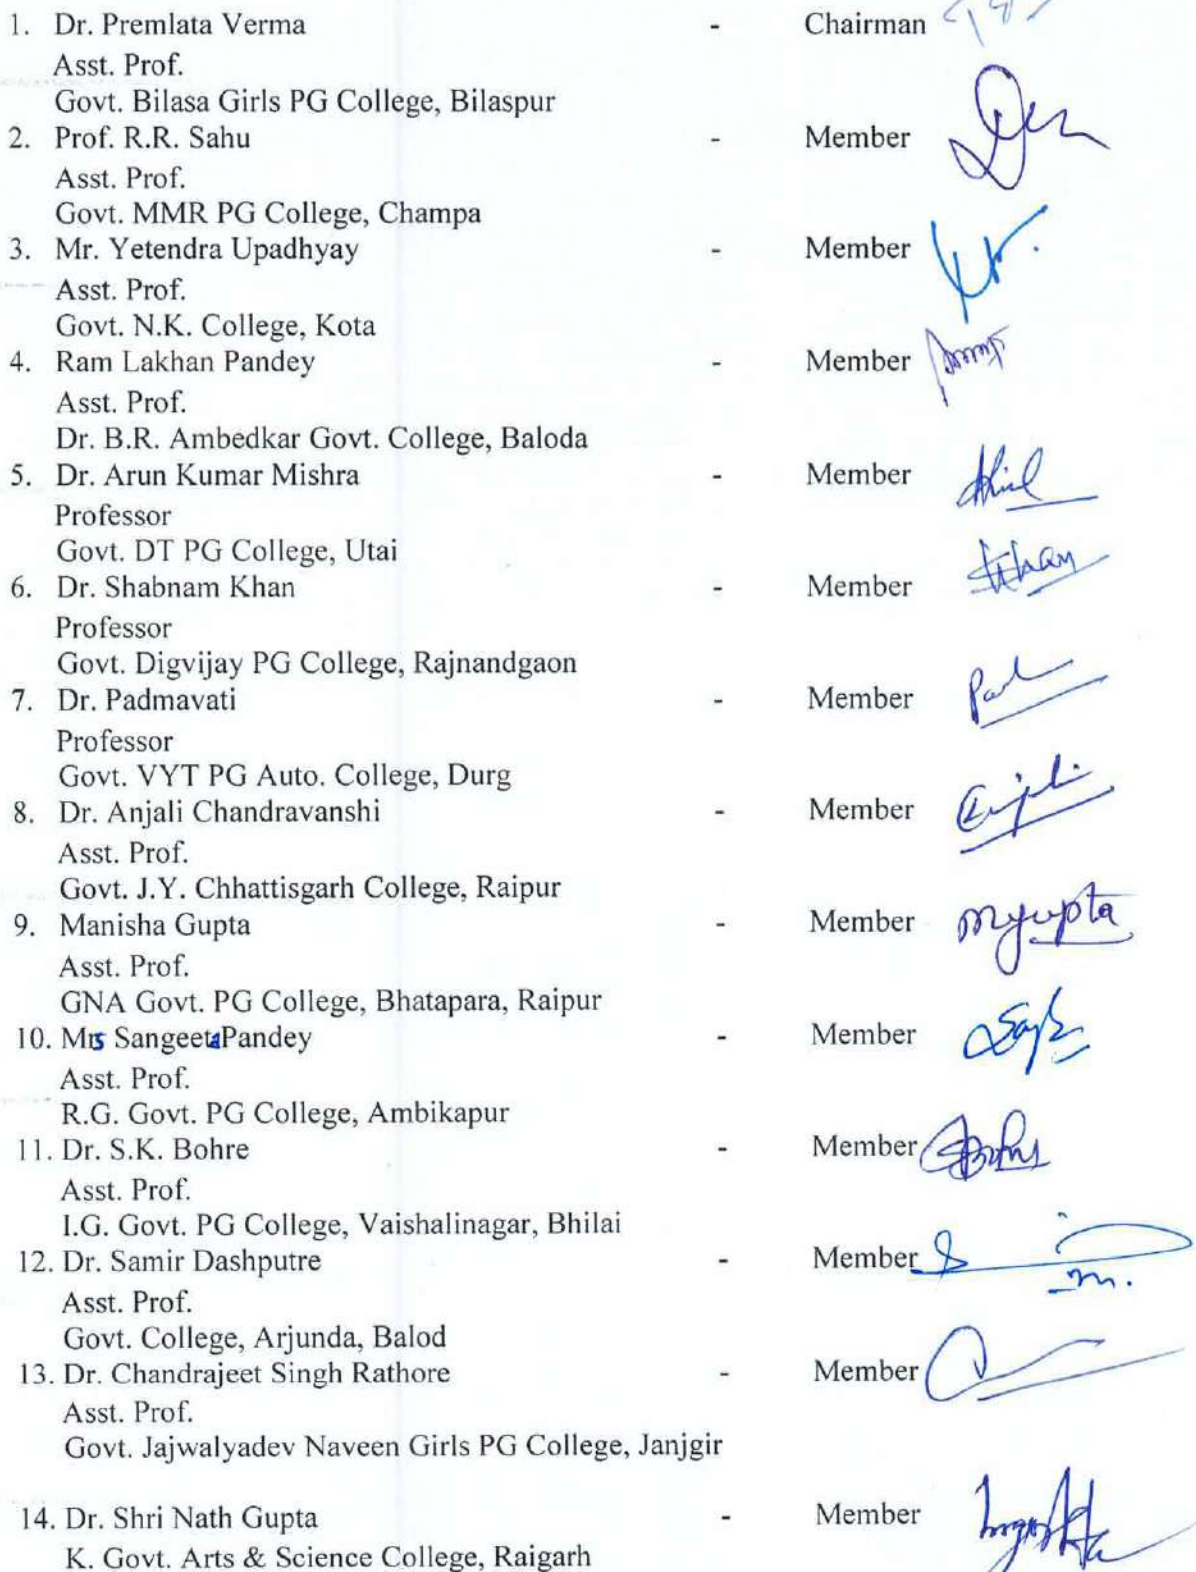 1. Dr. Premlata Verma - Chairman
Asst. Prof.
Govt. Bilasa Girls PG College, Bilaspur
2. Prof. R.R. Sahu - Member
Asst. Prof.
Govt. MMR PG College, Champa
3. Mr. Yetendra Upadhyay - Member
Asst. Prof.
Govt. N.K. College, Kota
4. Ram Lakhan Pandey - Member
Asst. Prof.
Dr. B.R. Ambedkar Govt. College, Baloda
5. Dr. Arun Kumar Mishra - Member
Professor
Govt. DT PG College, Utai
6. Dr. Shabnam Khan - Member Khan
Professor
Govt. Digvijay PG College, Rajnandgaon
7. Dr. Padmavati - Member
Professor
Govt. VYT PG Auto. College, Durg
8. Dr. Anjali Chandravanshi - Member
Asst. Prof.
Govt. J.Y. Chhattisgarh College, Raipur
9. Manisha Gupta - Member mgupta
Asst. Prof.
GNA Govt. PG College, Bhatapara, Raipur
10. Mrs Sangeeta Pandey - Member
Asst. Prof.
R.G. Govt. PG College, Ambikapur
11. Dr. S.K. Bohre - Member
Asst. Prof.
I.G. Govt. PG College, Vaishalinagar, Bhilai
12. Dr. Samir Dashputre - Member
Asst. Prof.
Govt. College, Arjunda, Balod
13. Dr. Chandrajeet Singh Rathore - Member
Asst. Prof.
Govt. Jajwalyadev Naveen Girls PG College, Janjgir
14. Dr. Shri Nath Gupta - Member
K. Govt. Arts & Science College, Raigarh